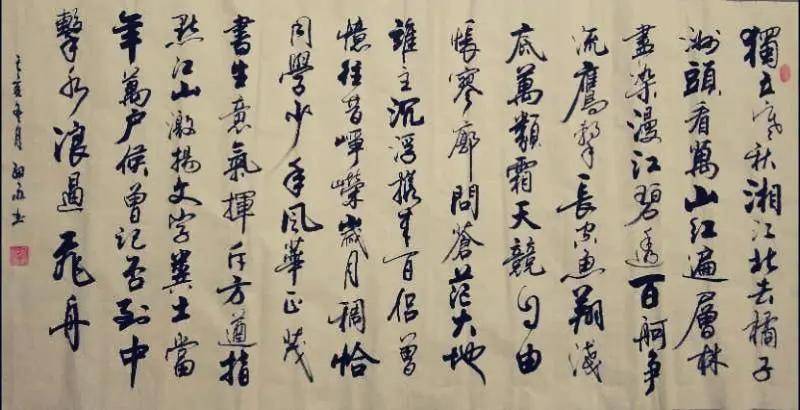 獨立寒秋湘江北去橘子
洲頭看萬山紅遍層林
盡染漫江碧透百舸爭
流鷹擊長空魚翔淺
底萬類霜天競自由
悵寥廓問蒼茫大地
誰主沉浮攜來百侶曾
憶往昔崢嶸歲月稠恰
同學少年風華正茂
書生意氣揮斥方遒指
點江山激揚文字糞土當
年萬戶侯曾記否到中
擊水浪遏飛舟